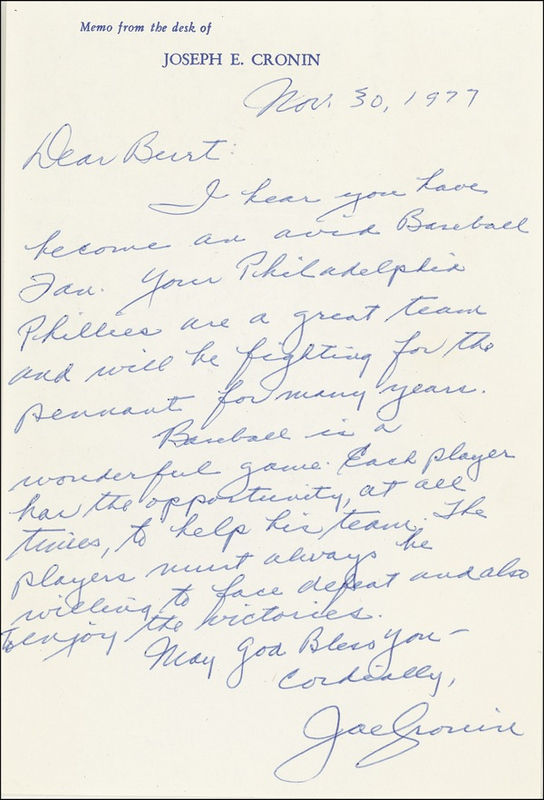 Memo from the desk of
JOSEPH E. CRONIN
Nov. 30, 1977
Dear Burt:
I hear you have
become an avid Baseball
Fan. Your Philadelphia
Phillies are a great team
and will be fighting for the
pennant for many years.
Baseball is a
wonderful game. Each player
has the opportunity, at all
times, to help his team. The
players must always be
willing to face defeat and also
to enjoy the victories.
May God Bless You -
Cordially,
Joe Cronin